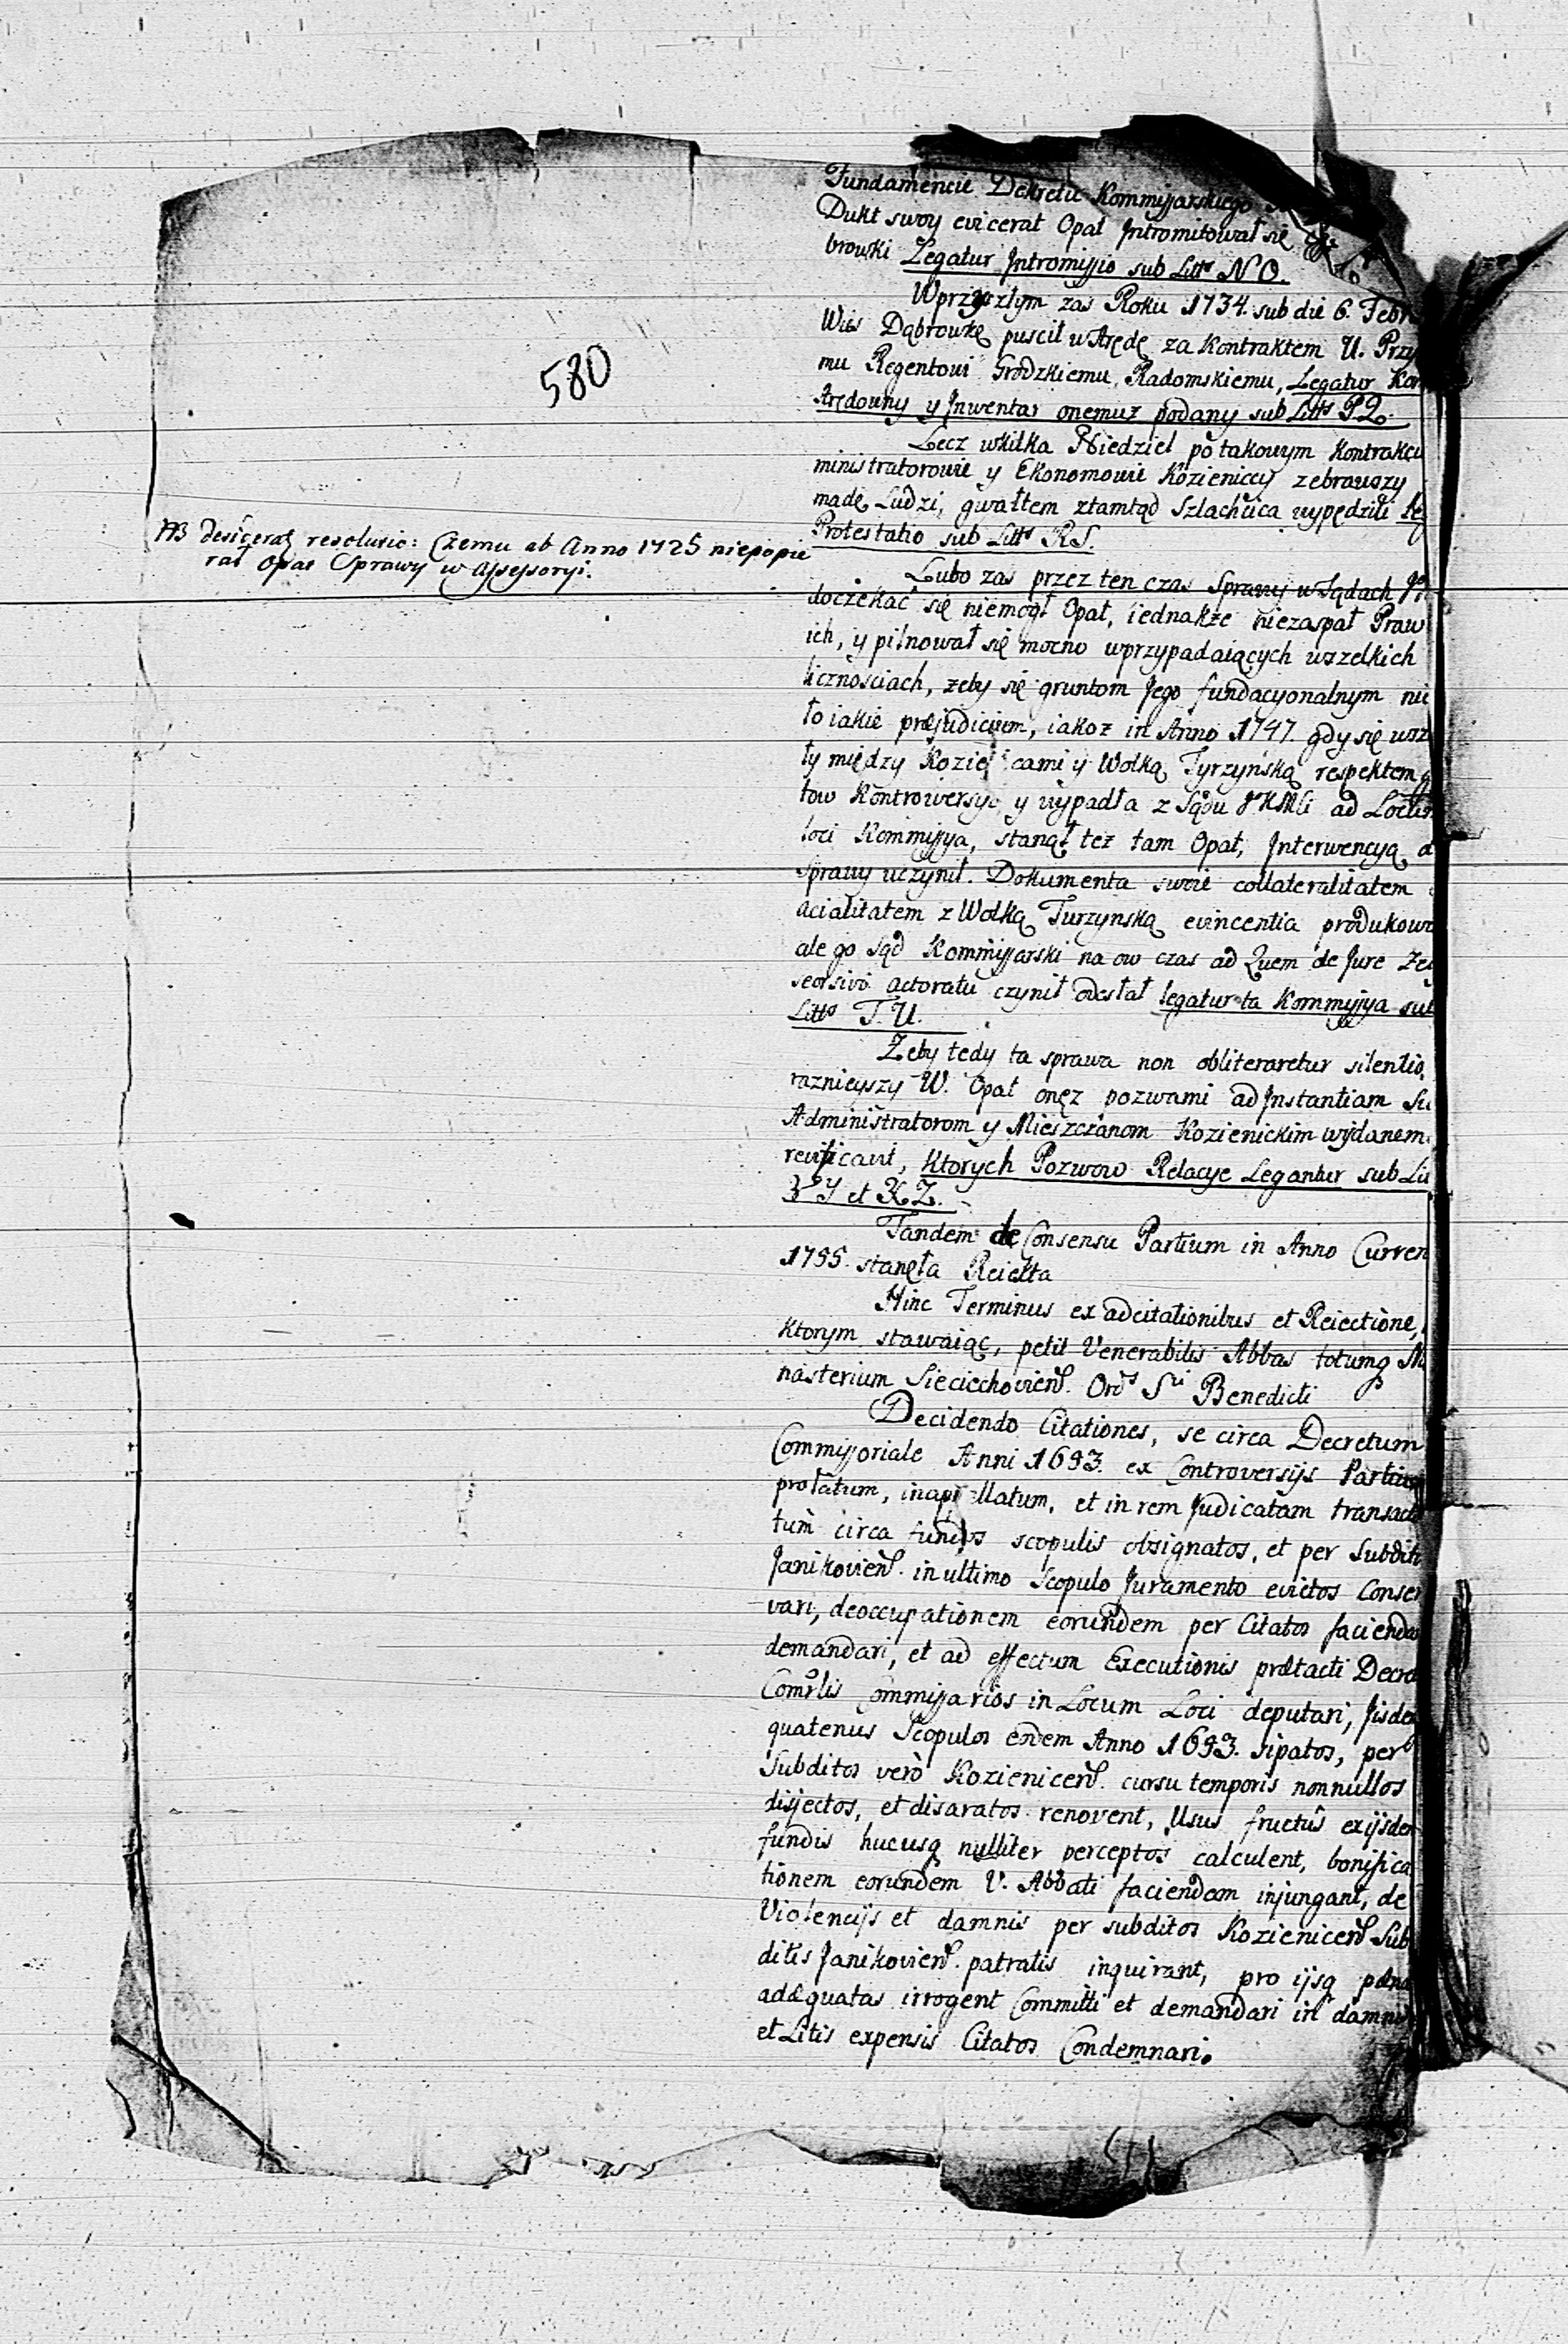 Fundamencie Dekretu Kommissarskiego
Dukt swoy evicerat Opat Intromitował się
browki Legatur Intromissio sub Litts N O.
Wprzyszłym zas Roku 1734. sub die 6. Febr
Wies Dąbrowkę puscił w Arędę za Kontraktem U. Przy
mu Regentowi Grodzkiemu, Radomskiemu, Legatur Kon
Arędowny y Inwentarz onemuż podany sub Litts P Q.
Lecz wkilka Niedziel po takowym Kontrakci
ministratorowie y Ekonomowie Kozieniccy zebrawszy
madę Ludzi, gwałtem ztamtąd Szlachcica wypędzili Le
Protestatio sub Litts R S.
580
NB desiderat resolutio: Czemu ab Anno 1725 niepopie
rał Opat Sprawy w Assessoryi.
Lubo zas przez ten czas Sprawy w Sądach
doczekać się niemogł Opat, iednakże niezaspał Praw
ich, y pilnował się mocno wprzypadaiących wszelkich
licznościach, żeby się gruntom Jego fundacyonalnym nie
to iakie præjudicium, iakoż in Anno 1747. gdy się wsz
ły między Kozienicami y Wolką Tyrzyńską respektem g
tow Kontrowersye y wypadła z Sądu JKMci ad Locum
loci Kommissya, stanął też tam Opat, Interwencyą d
Sprawy uczynił. Dokumenta swoie collateralitatem
acialitatem z Wolką Turzynską evincentia produkowa
ale go Sąd Kommissarski na ow czas ad Quem de Jure że
seorsivo actoratu czynił odesłał legatur ta Kommissya sub
Litts T. U.
Zeby tedy ta sprawa non obliteraretur silentio,
raznieyszy W. Opat onęż pozwami ad Instantiam Su
Administratorom y Mieszczanom Kozienickim wydanemi
reviticavit, Ktorych Pozwow Relacye Legantur sub Lit
Y et X Z.
Tandem de Consensu Partium in Anno Curren
1755. stanęła Reiekta
Hinc Terminus ex adcitationibus et Reiectione,
Ktorym stawaiąc, petit Venerabilis Abbas totumq Mo
nasterium Sieciechovien. Ords Sti Benedicti
Decidendo Citationes, se circa Decretum
Commissoriale Anni 1693. ex Controversijs Partium
prolatum, inappellatum, et in rem Judicatam transac
tum circa fundos scopulis obsignatos, et per Subdit
Janikovien. in ultimo Scopulo Juramento evictos Conser
vari, deoccupationem eorundem per Citatos faciendam
demandari, et ad effectum Executionis prætacti Decre
Comrlis Commissarios in Locum Loci deputari, Iisdem
quatenus Scopulos eodem Anno 1693. sipatos, per
Subditos verò Kozienicen. cursu temporis nonnullos
disjectos, et disaratos renovent, Usus fructûs ex ijsdem
fundis hucusq nulliter perceptos calculent, bonifica
tionem eorundem V. Abbati faciendam injungant, de
Violencijs et damnis per subditos Kozienicen Sub
ditis Janikovien. patratis inquirant, pro ijsq pænas
adæquatas irrogent Committi et demandari in damnis
et Litis expensis Citatos Condemnari.